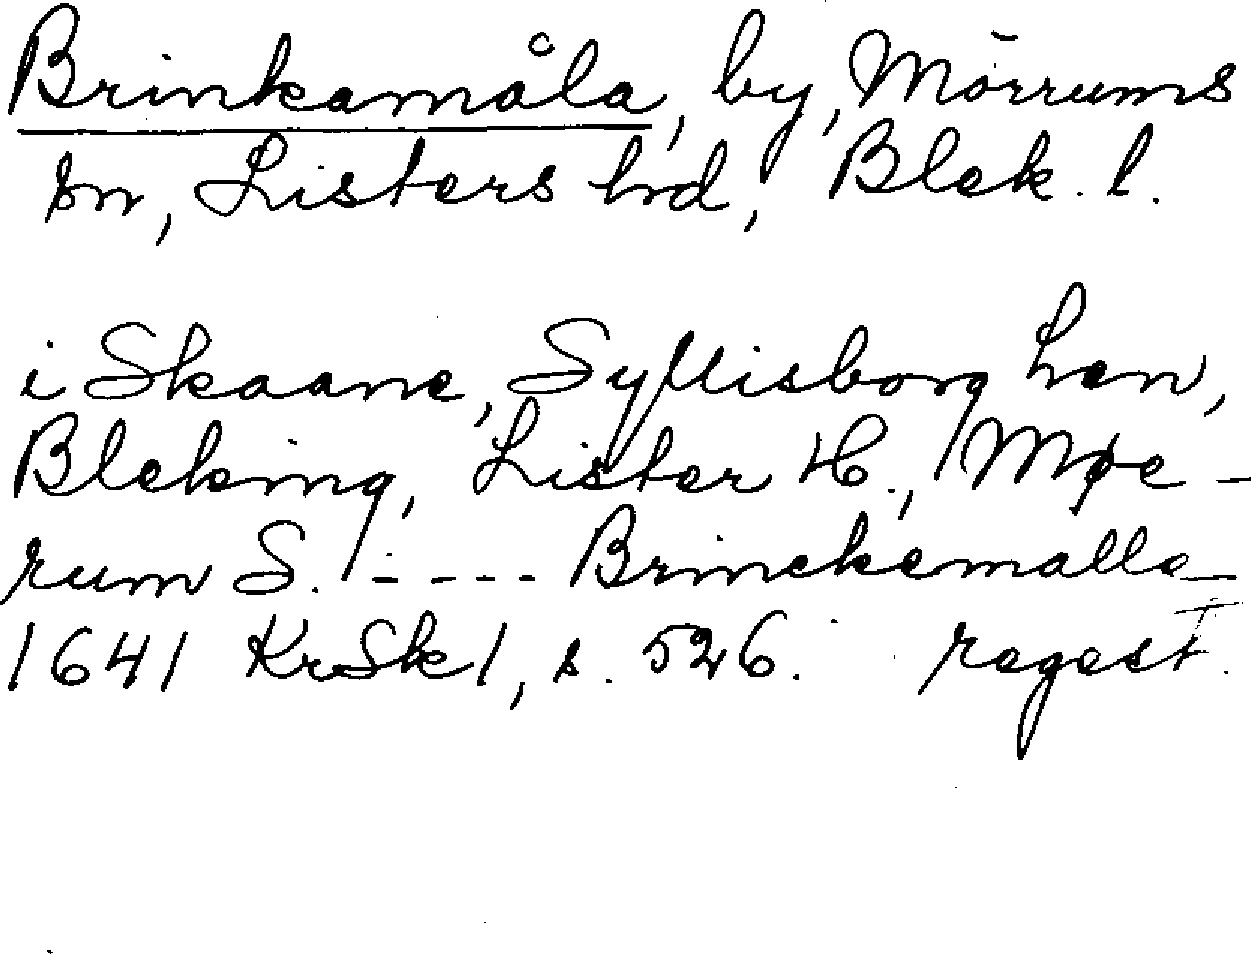 Brinkamåla, by, Mörrums
sn, Listers hrd, Blek. l.
i Skaane, Syllisborg Len,
Bleking, Lister H., Møe-
rum S. ---- Brinckemalle
1641 KrSk 1, s. 526. regest.